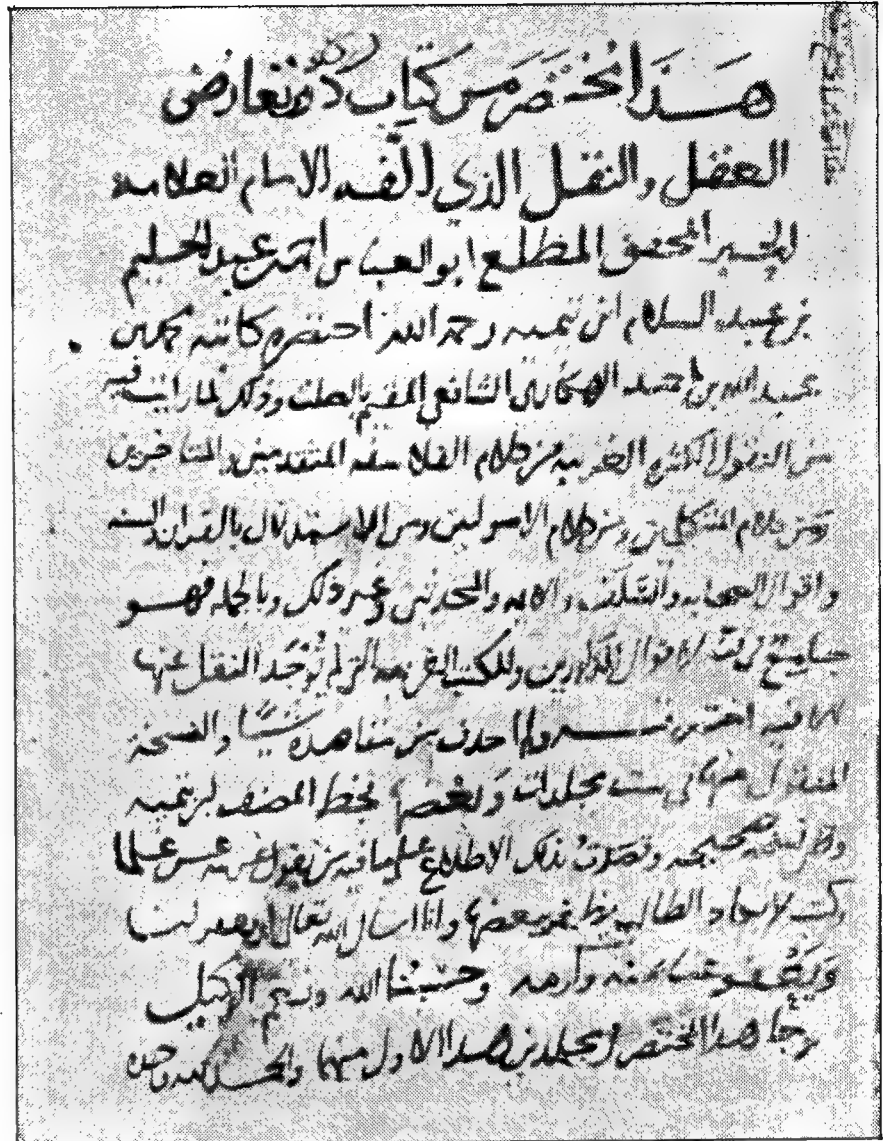 هذا مختصر من كتاب درء تعارض
العقل والنقل الذي ألفه الامام العلامة
الحبر المحقق المطلع ابو العباس احمد بن عبد الحليم
بن عبد السلام ابن تيميه رحمه الله اختصره كاتبه محمد بن
عبد الله بن احمد الهكاري الشافعي المقيم بالصلت وذلك لما رايت فيه
من النقول الكثيره الغريبه من كلام الفلاسفه المتقدمين والمتاخرين
ومن كلام المتكلمين ومن كلام الاصوليين ومن الاستدلال بالقران والسنه
واقوال الصحابه والسلف والايمه والمحدثين وغير ذلك وبالجمله فهو
جامع لاقوال المذكورين وللكتب الغريبه التي لم يوجد النقل عنها
الا فيه اختصرته ولم احذف من مقاصده شيئا والنسخة
المنقول منها في ست مجلدات وبعضها بخط المصنف ابن تيميه
صحيحه وقصدت بذلك الاطلاع على ما فيه من نقول غريبه
الطالب يظفر ببعضها وانا اسال الله تعالى ان يغفر لنا
ويعفو عنا بمنه وكرمه وحسبنا الله ونعم الوكيل
وجا هذا المختصر في مجلدين هذا الاول منهما والحمد لله وحده